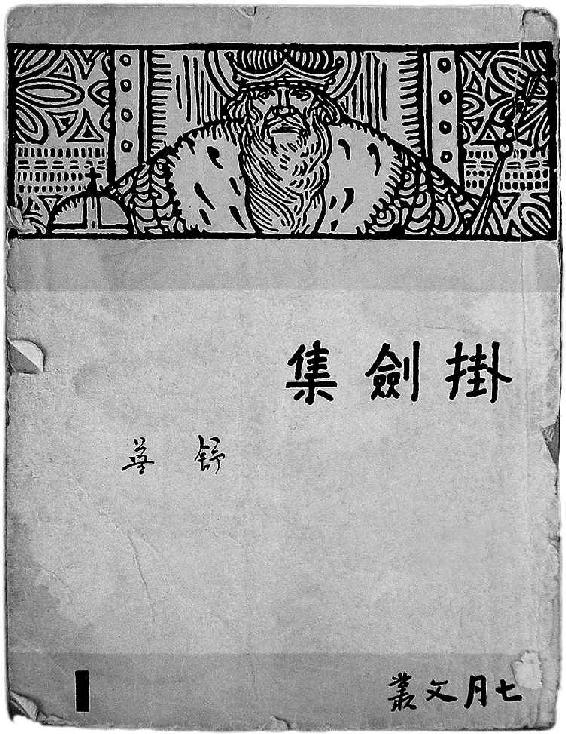 掛劍集
舒蕪
七月文叢